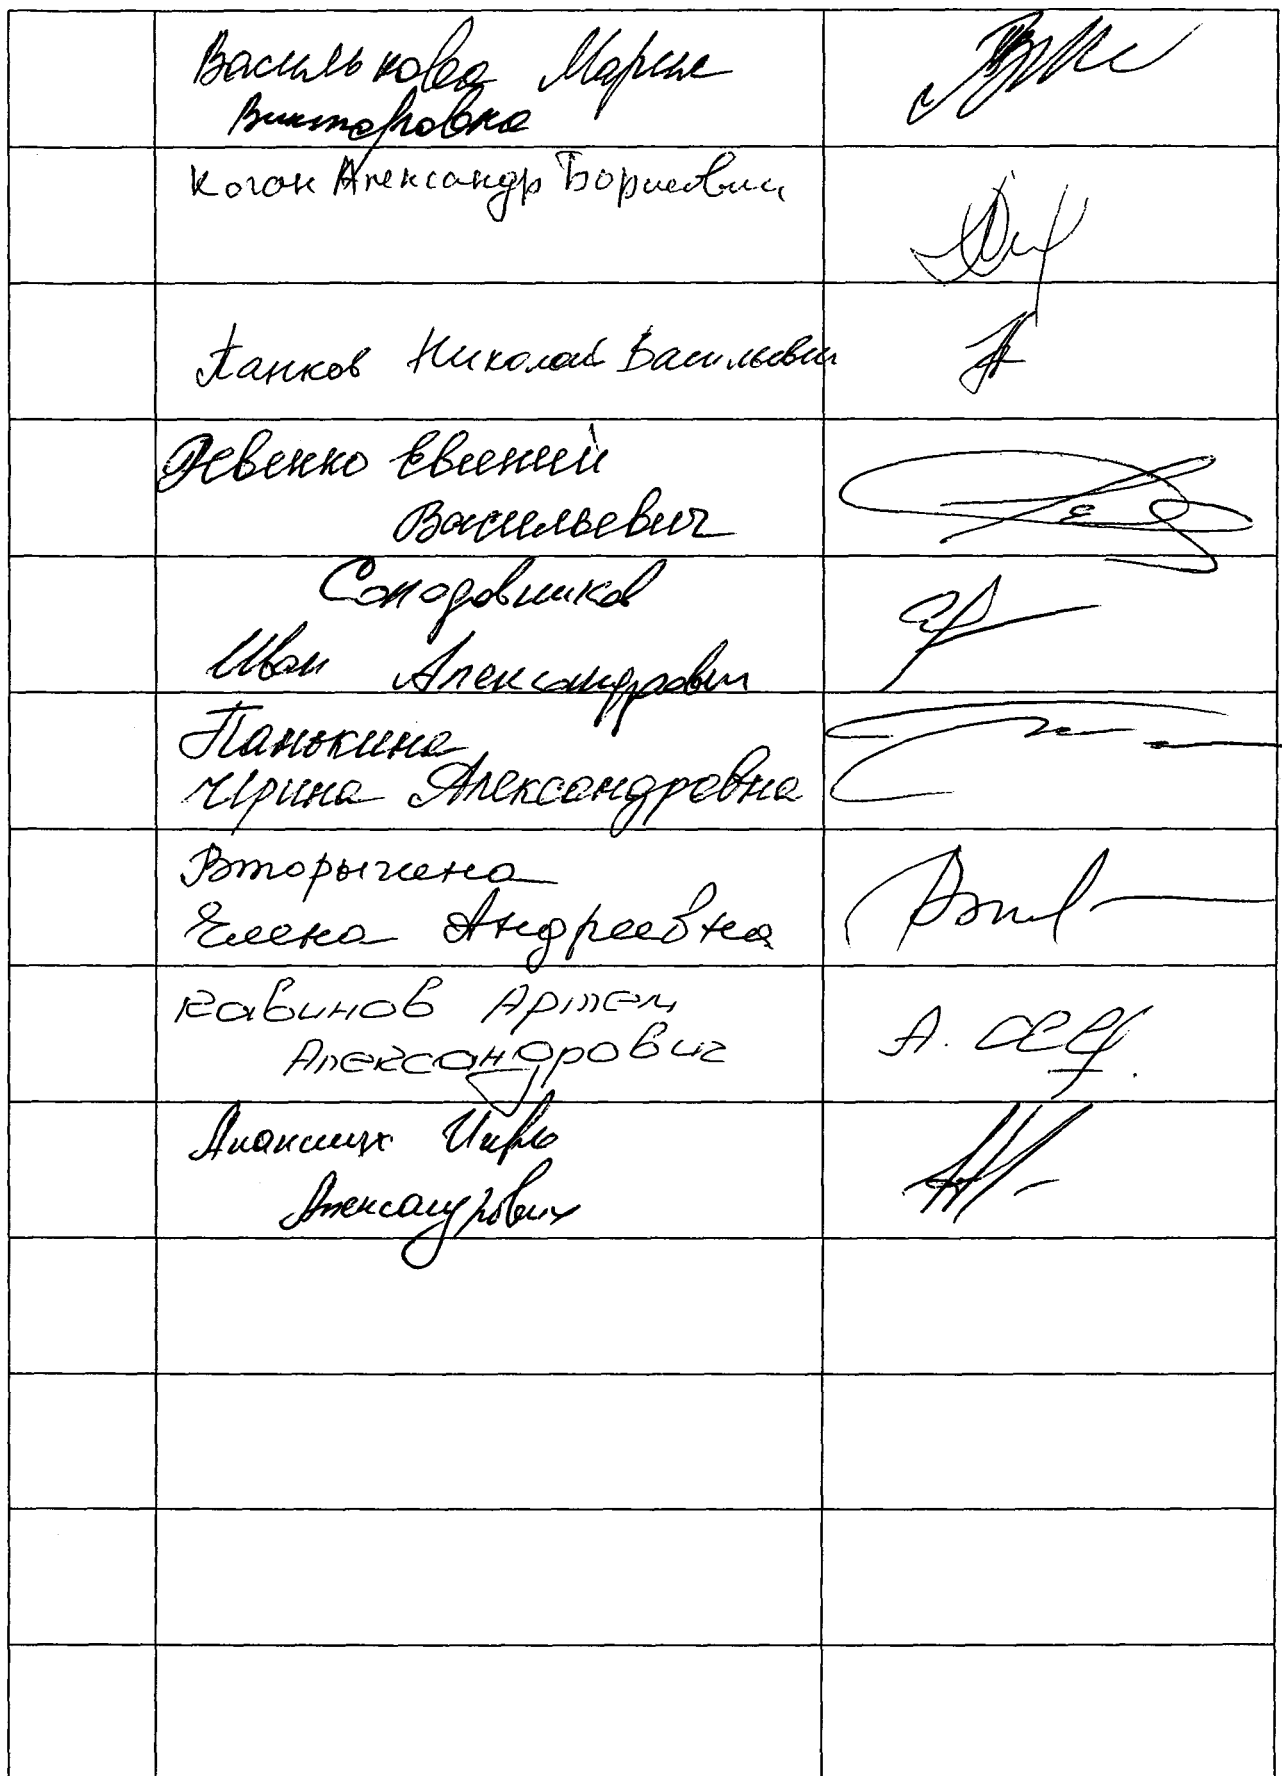 Василькова Мария
Викторовна
Коган Александр Борисович
Панков Николай Васильевич
Ревенко Евгений
Васильевич
Солодовников
Иван Александрович
Панькина
Ирина Александровна
Вторыгина
Елена Андреевна
Кавинов Артём
Александрович
Ананских Игорь
Александрович